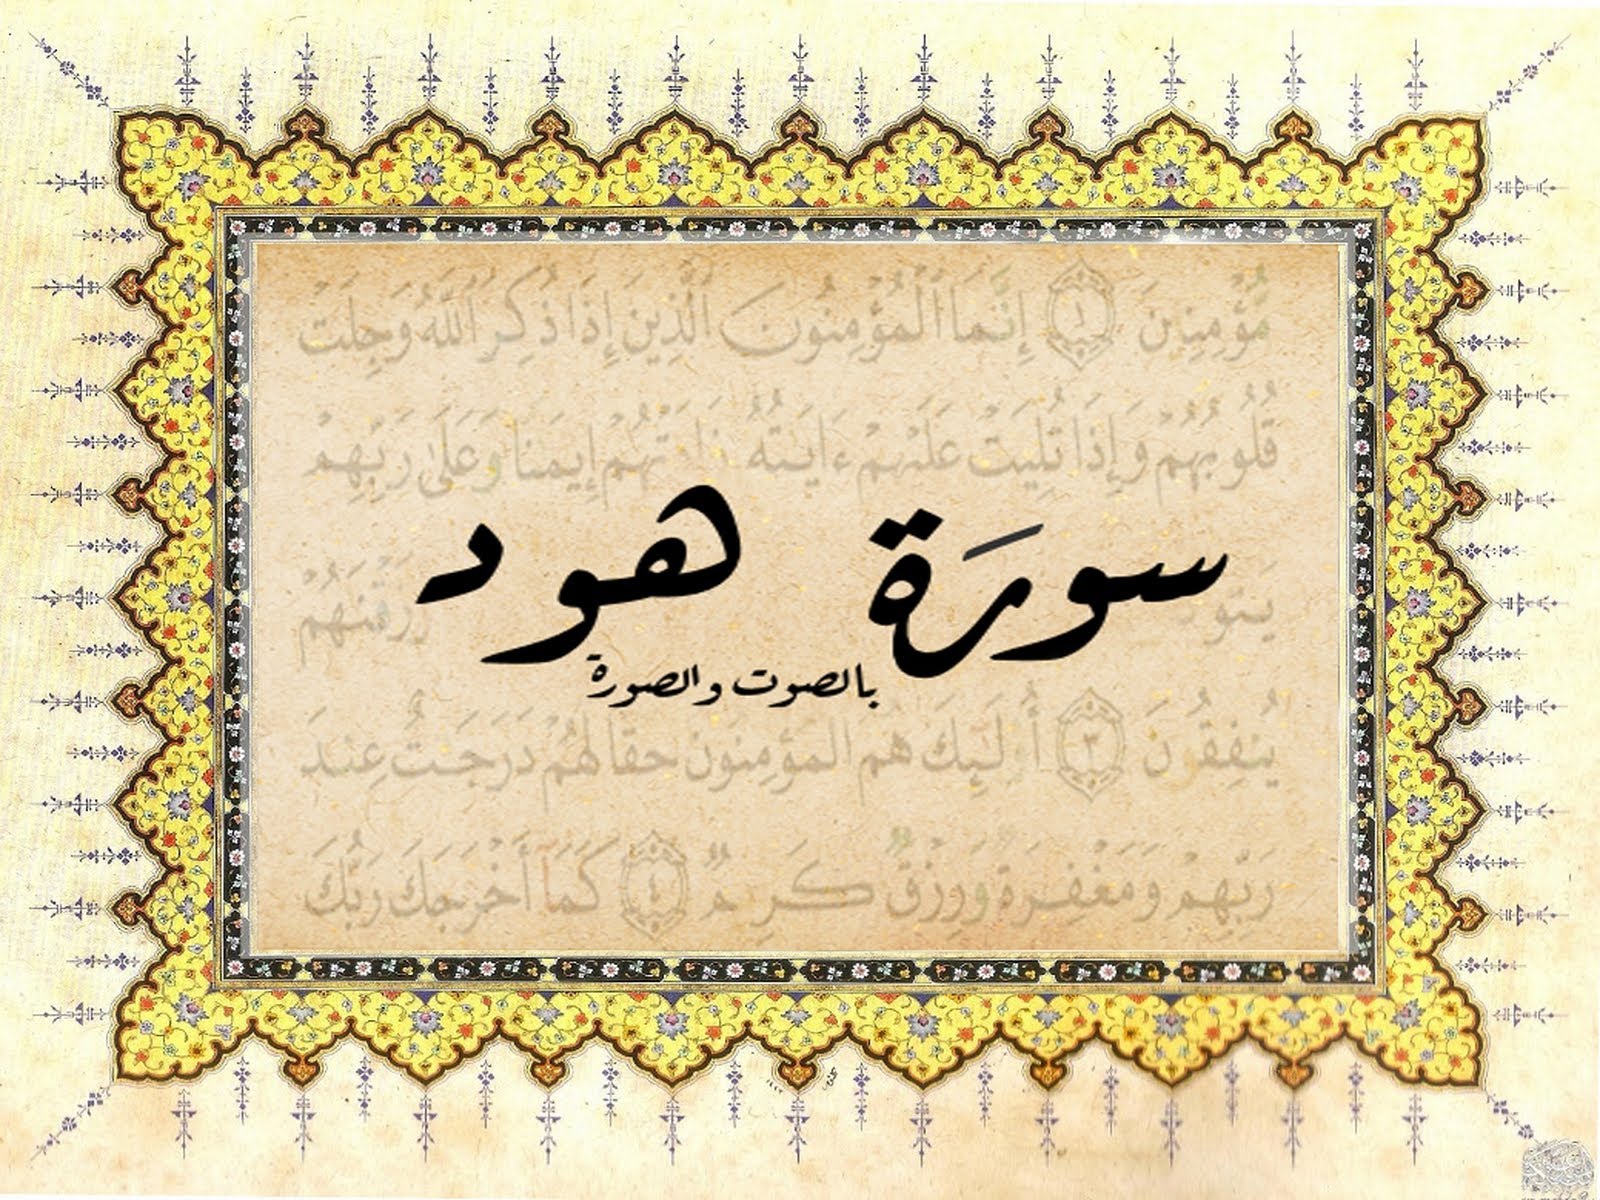 مُؤْمِنِينَ ١ إِنَّمَا الْمُؤْمِنُونَ الَّذِينَ إِذَا ذُكِرَ اللَّهُ وَجِلَتْ
قُلُوبُهُمْ وَإِذَا تُلِيَتْ عَلَيْهِمْ ءَايَتُهُ زَادَتْهُمْ إِيمَنًا وَعَلَى رَبِّهِمْ
سورَة هود
رَزَقْنَهُمْ
بالصوت والصورة
يُنفِقُونَ ٣ أُولَئِكَ هم المؤمنون حقا لَهُمْ دَرَجَتٌ عِندَ
رَبِّهِمْ وَمَغْفِرَة وَرِزْقٌ كَرِيمٌ ٤ كَمَا أَخْرَجَكَ رَبُّكَ